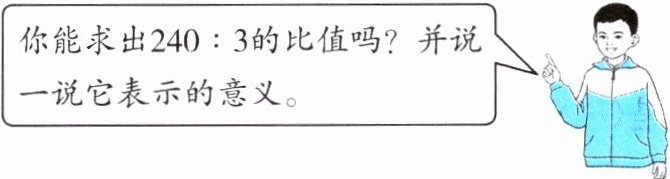 你能求出240：3的比值吗？并说
一说它表示的意义。